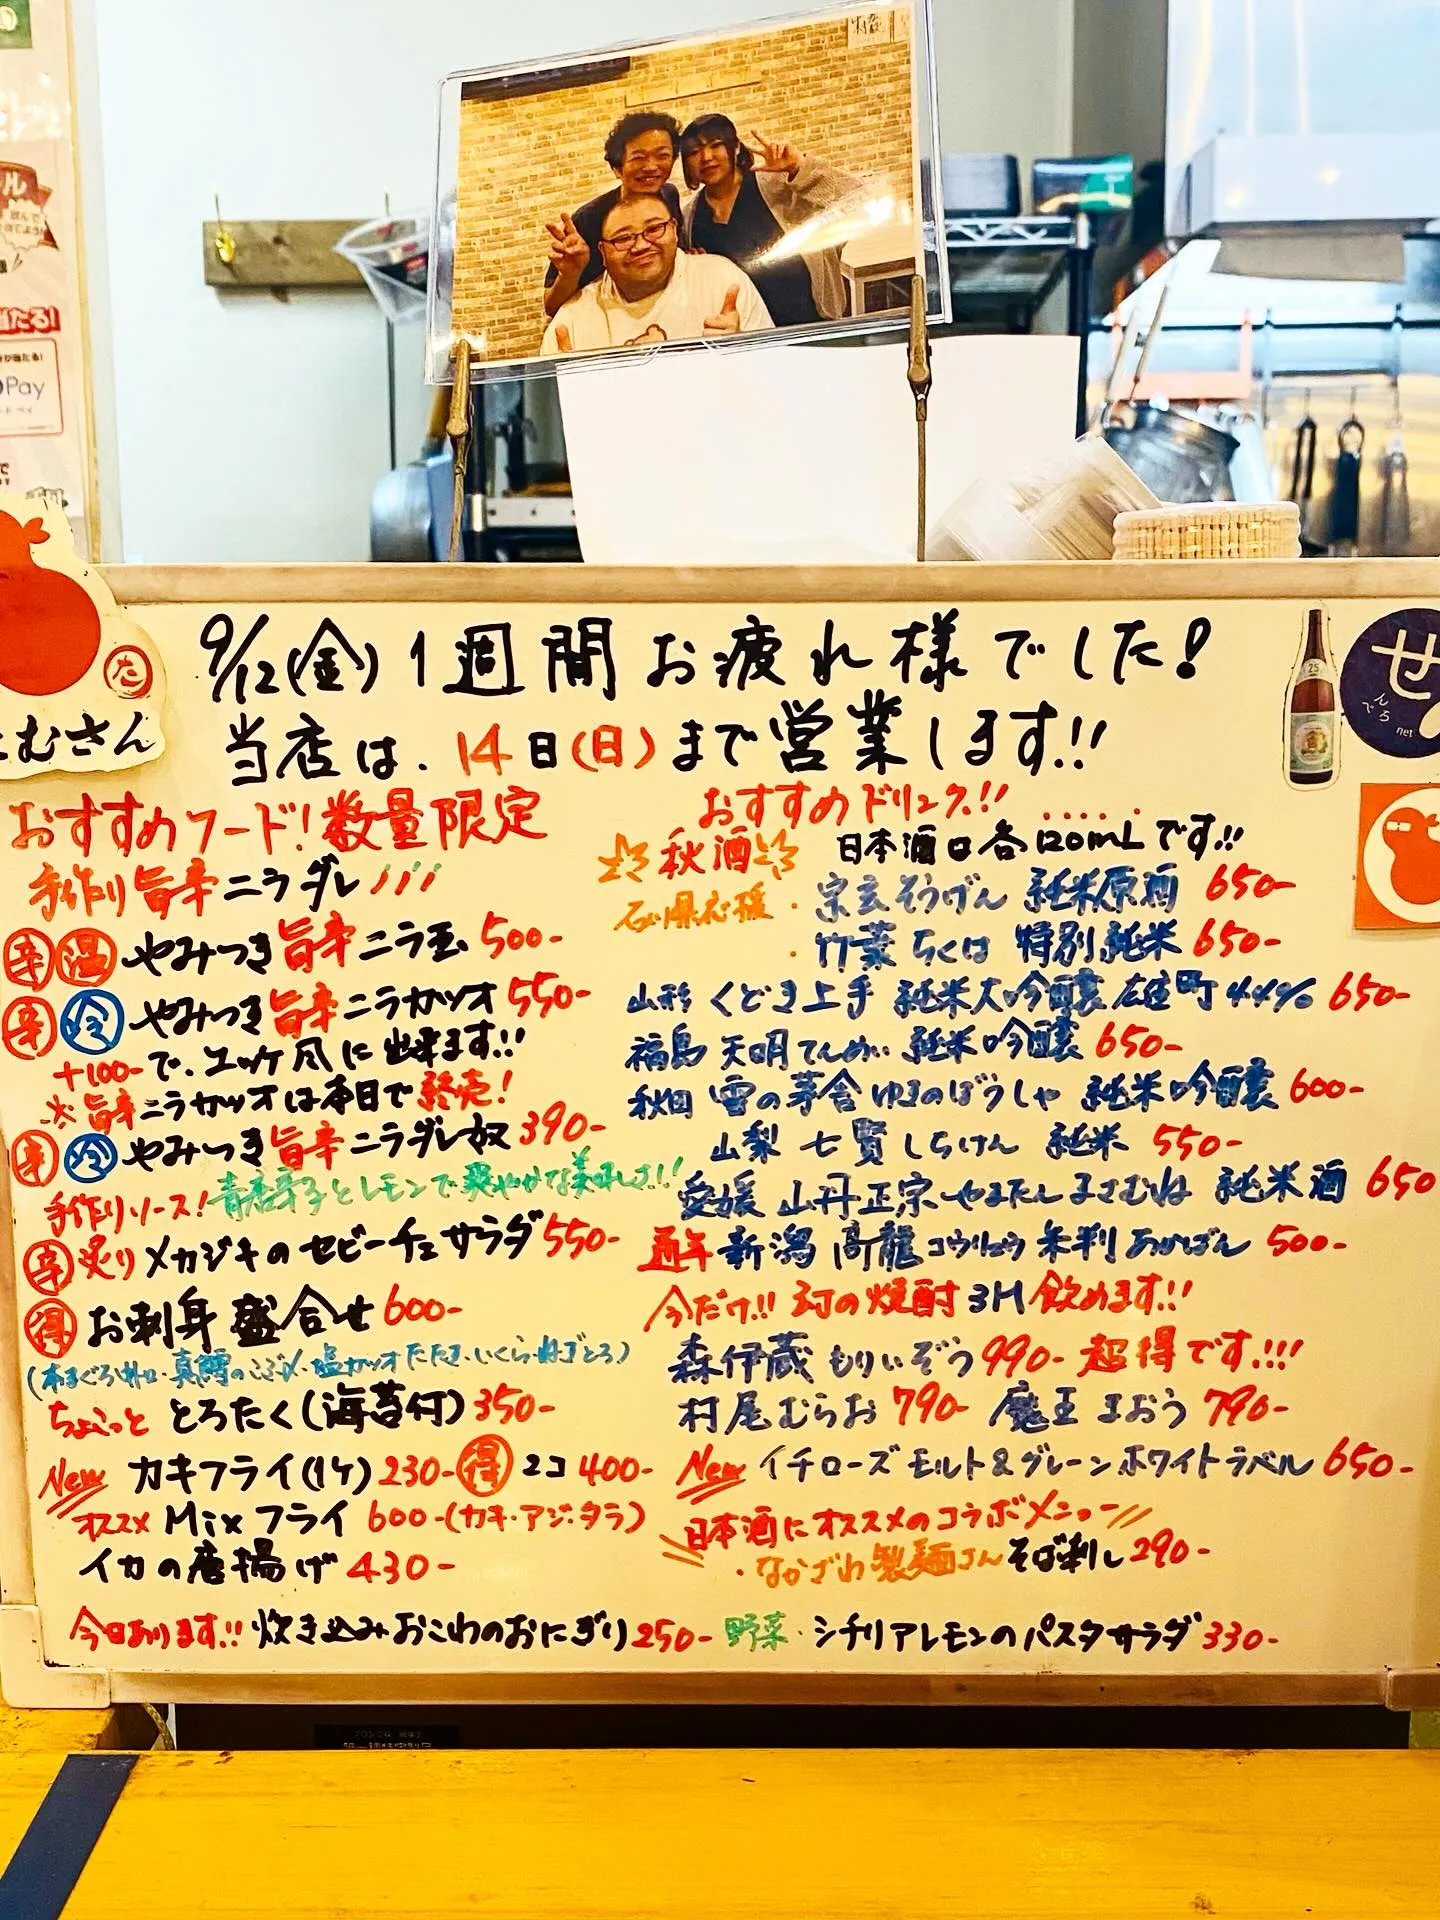 9/12(金)1週間お疲れ様でした!
当店は、14日(日)まで営業します!!
むさん
せ
でんろ
net
25
Pay
おすすめフード!数量限定
手作り旨辛ニラダレ!!!
辛 温 やみつき旨辛ニラ玉 500-
辛 冷 やみつき旨辛ニラカツオ 550-
+100-で、ユッケ風に出来ます!!
※旨辛ニラカツオは本日で終売!
辛 冷 やみつき旨辛ニラダレ奴 390-
手作りソース!青唐辛子とレモンで爽やかな美味しさ!!
辛 炙りメカジキのセビーチェサラダ 550-
得 お刺身盛合せ 600-
(本まぐろ・真鯛のこぶ〆・塩カツオたたき・いくら・ねぎとろ)
ちょこっと とろたく(海苔付) 350-
New カキフライ(1ケ) 230- 得 2コ 400-
オススメ Mixフライ 600-(カキ・アジ・タラ)
イカの唐揚げ 430-
今日あります!!炊き込みおこわのおにぎり 250-
おすすめドリンク!!
秋酒 日本酒は各120mLです!!
石川県応援・宗玄そうげん 純米原酒 650-
・竹葉ちくは 特別純米 650-
山形 くどき上手 純米大吟醸 雄町44% 650-
福島 天明てんめい 純米吟醸 650-
秋田 雪の茅舎ゆきのぼうしゃ 純米吟醸 600-
山梨 七賢しちけん 純米 550-
愛媛 山丹正宗やまたんまさむね 純米酒 650
通年 新潟 高龍コウリュウ 朱判あかばん 500-
今だけ!!幻の焼酎3M飲めます!!
森伊蔵もりいぞう 990- 超得です!!!
村尾むらお 790- 魔王まおう 790-
New イチローズモルト&グレーンホワイトラベル 650-
日本酒にオススメのコラボメニュー
・なかざわ製麺さん そば刺し 290-
野菜・シチリアレモンのパスタサラダ 330-